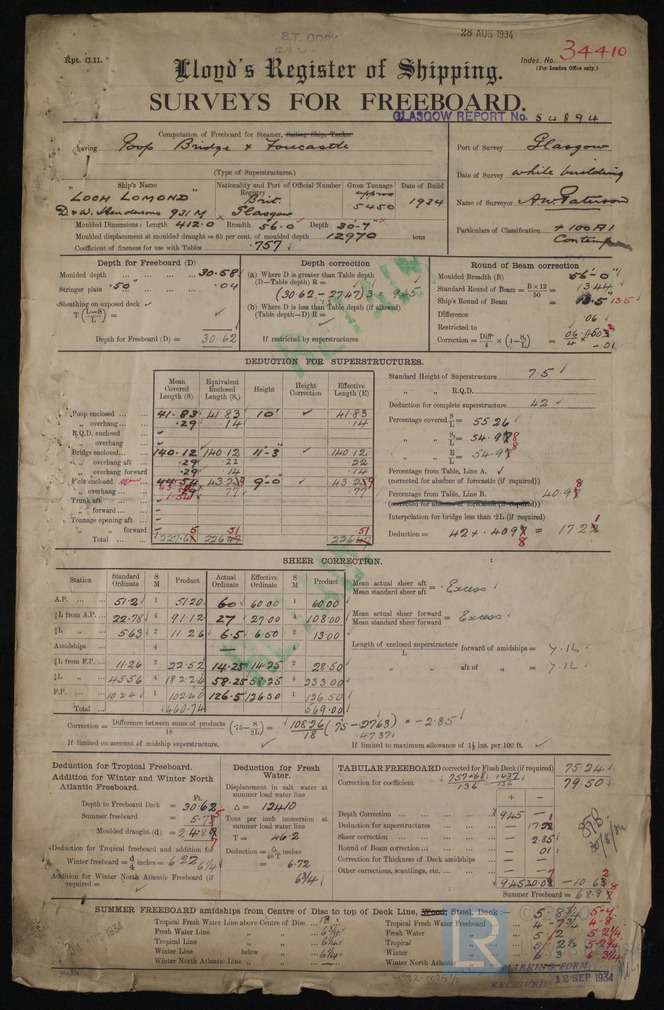 B.T. COPY
28 AUG 1934
Rpt. C.11.
Index. No. 34410
(For London Office only.)
Lloyd's Register of Shipping.
SURVEYS FOR FREEBOARD.
GLASGOW REPORT No. 54894
Computation of Freeboard for Steamer, Sailing Ship, Tanker
having Poop Bridge & Forecastle
(Type of Superstructures.)
Port of Survey Glasgow
Date of Survey while building
Name of Surveyor A.W. Paterson
Particulars of Classification +100A1
Ship's Name Nationality and Port of Registry Official Number Gross Tonnage Date of Build
"LOCH LOMOND" Brit. approx 5450 1934
D. & W. Hendersons 931M Glasgow
Moulded Dimensions: Length 412.0 Breadth 56.0 Depth 30.7
Moulded displacement at moulded draught = 85 per cent. of moulded depth 12970 tons
Coefficient of fineness for use with Tables .757
Depth for Freeboard (D)
Moulded depth 30.58
Stringer plate .50 .04
Sheathing on exposed deck
T (L-S/L) =
Depth for Freeboard (D) = 30.62
Depth correction
(a) Where D is greater than Table depth
(D—Table depth) R =
(30.62 - 27.47) 3 = 9.45
(b) Where D is less than Table depth (if allowed)
(Table depth—D) R =
If restricted by superstructures
Round of Beam correction
Moulded Breadth (B) 56.0
Standard Round of Beam = B×12/50 = 13.44
Ship's Round of Beam = 13.5
Difference .06
Restricted to
Correction = Diff/4 × (1-S/L) = -.01
DEDUCTION FOR SUPERSTRUCTURES.
Mean Covered Length (S) Equivalent Enclosed Length (S₁) Height Height Correction Effective Length (E)
Poop enclosed 41.83 41.83 10' 41.83
„ overhang .29 .14 .14
R.Q.D. enclosed
„ overhang
Bridge enclosed 140.12 140.12 11'-3" 140.12
„ overhang aft .29 .22 .22
„ overhang forward .29 .14 .14
F'cle enclosed 44.54 43.25 9'-0" 43.25
„ overhang .77 .77
Trunk aft
„ forward
Tonnage opening aft
„ „ forward
Total
Standard Height of Superstructure 7.5
„ „ R.Q.D.
Deduction for complete superstructure 42
Percentage covered S/L = 55.26
„ „ S₁/L = 54.98
„ „ E/L = 54.98
Percentage from Table, Line A.
(corrected for absence of forecastle (if required))
Percentage from Table, Line B. 40.98
(corrected for absence of forecastle (if required))
Interpolation for bridge less than ·2L (if required)
Deduction = 42 × .4098 = 17.21
SHEER CORRECTION.
Station Standard Ordinate S M Product Actual Ordinate Effective Ordinate S M Product
A.P. 51.2 1 51.20 60 60.00 1 60.00
⅙L from A.P. 22.78 4 91.12 27 27.00 4 108.00
⅓L „ 5.63 2 11.26 6.5 6.50 2 13.00
Amidships 4 — 4
⅓L from F.P. 11.26 2 22.52 14.25 14.25 2 28.50
⅙L „ 45.56 4 182.24 58.25 58.25 4 233.00
F.P. 102.4 1 102.40 126.5 126.50 1 126.50
Total 460.74 569.00
Mean actual sheer aft / Mean standard sheer aft = Excess
Mean actual sheer forward / Mean standard sheer forward = Excess
Length of enclosed superstructure / L forward of amidships = 7.1L
„ „ aft of „ = 7.1L
Correction = Difference between sums of products / 18 (·75 - S/2L) = 108.26/18 (.75 - .2763) = -2.85
.4737
If limited on account of midship superstructure.
If limited to maximum allowance of 1½ ins. per 100 ft.
Deduction for Tropical Freeboard.
Addition for Winter and Winter North Atlantic Freeboard.
Ft.
Depth to Freeboard Deck = 30.62
Summer freeboard =
Moulded draught (d) =
Deduction for Tropical freeboard and addition for
Winter freeboard = d/4 inches = 6.22 6¼
Addition for Winter North Atlantic Freeboard (if required) =
Deduction for Fresh Water.
Displacement in salt water at summer load water line
Δ = 12410
Tons per inch immersion at summer load water line
T = 46.2
Deduction = Δ/40T inches =
= 6.72
6¾
TABULAR FREEBOARD corrected for Flush Deck (if required) 75.24
Correction for coefficient .757+.68/1.36 1.437/1.36 79.50
+ —
Depth Correction 9.45 —
Deduction for superstructures — 17.21
Sheer correction — 2.85
Round of Beam correction — .01
Correction for Thickness of Deck amidships — —
Other corrections, scantlings, etc. — —
Summer Freeboard = 68.88
SUMMER FREEBOARD amidships from Centre of Disc to top of Deck Line, Wood Steel, Deck:—
Tropical Fresh Water Line above Centre of Disc 13
Fresh Water Line „ „ 6¾
Tropical Line „ „ 6¼
Winter Line below „ 6¼
Winter North Atlantic Line „ „
5-8¾
Tropical Fresh Water Freeboard 4-7¾ 4-8
Fresh Water „ 5-2 5-2¼
Tropical „ 5-2½
Winter „ 6-3 6-3¼
Winter North Atlantic „
RECEIVED 12 SEP 1934